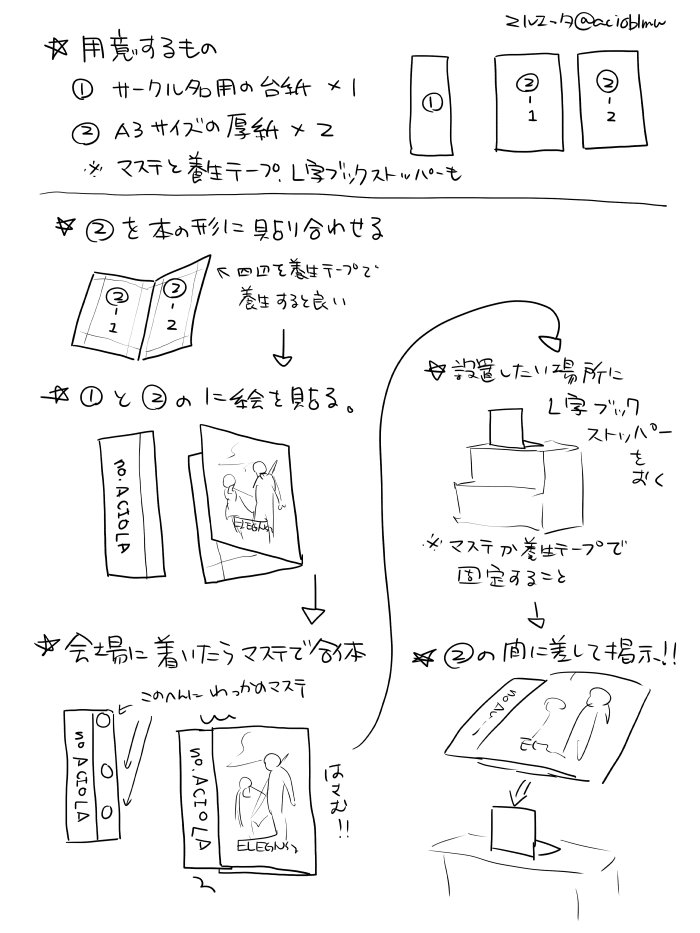 ミルエッタ@acioblmw
☆ 用意するもの
① サークル名用の台紙 × 1
② A3サイズの厚紙 × 2
※ マステと養生テープ、L字ブックストッパーも
①
②-1
②-2
☆ ②を本の形に貼り合わせる
②-1
②-2
← 四辺を養生テープで
養生すると良い
☆ ①と②のに絵を貼る。
no.ACIOLA
ELEGNS
☆ 会場に着いたらマステで合体
このへんにわっかのマステ
no ACIOLA
no.ACIOLA
ELEGNS
はさむ!!
☆ 設置したい場所に
L字ブック
ストッパー
を
おく
※ マステか養生テープで
固定すること
☆ ②の間に差して掲示!!